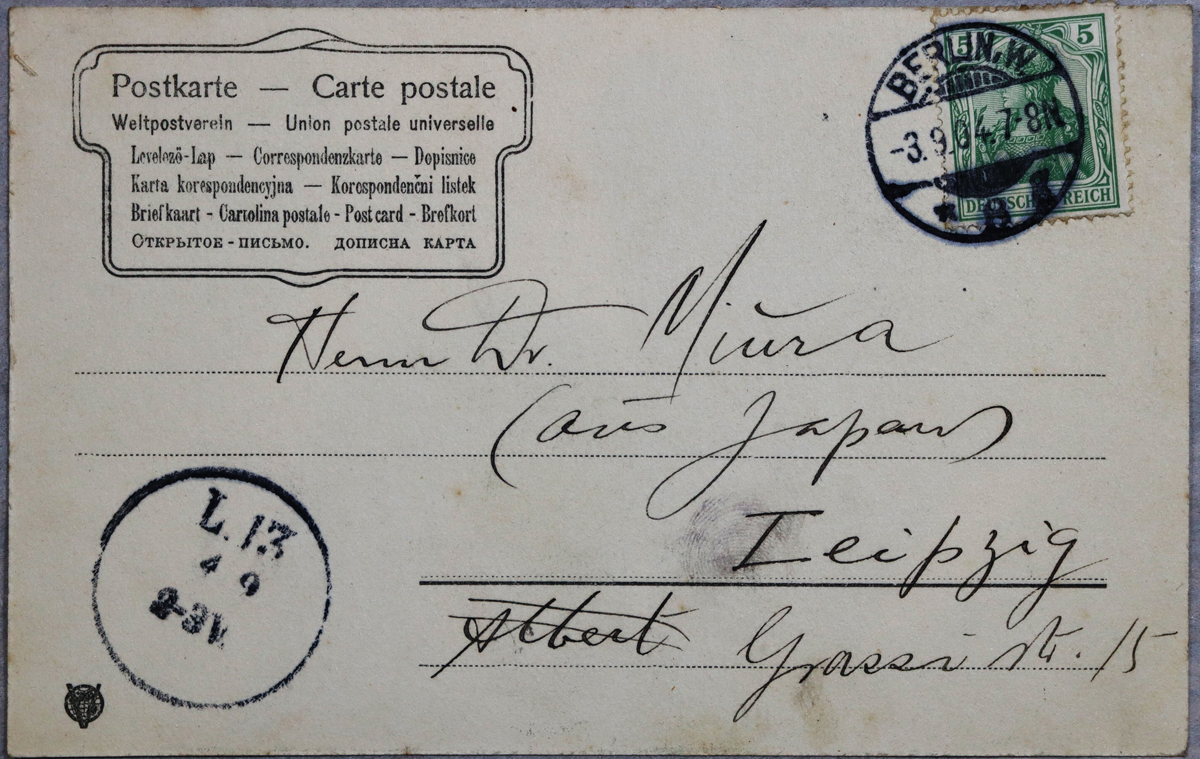 Postkarte — Carte postale
Weltpostverein — Union postale universelle
Levelező-Lap — Correspondenzkarte — Dopisnice
Karta korespondencyjna — Korespondenční listek
Briefkaart - Cartolina postale - Post card - Brefkort
ОТКРЫТОЕ - ПИСЬМО. ДОПИСНА КАРТА
BERLIN. W
-3. 9. 04. 7-8N.
* 8
5 5
DEUTSCHES REICH
Herrn Dr. Miūra
(aūs Japan)
Leipzig
Albert Grassi str. 15
L. 13
4 9
2-3V.